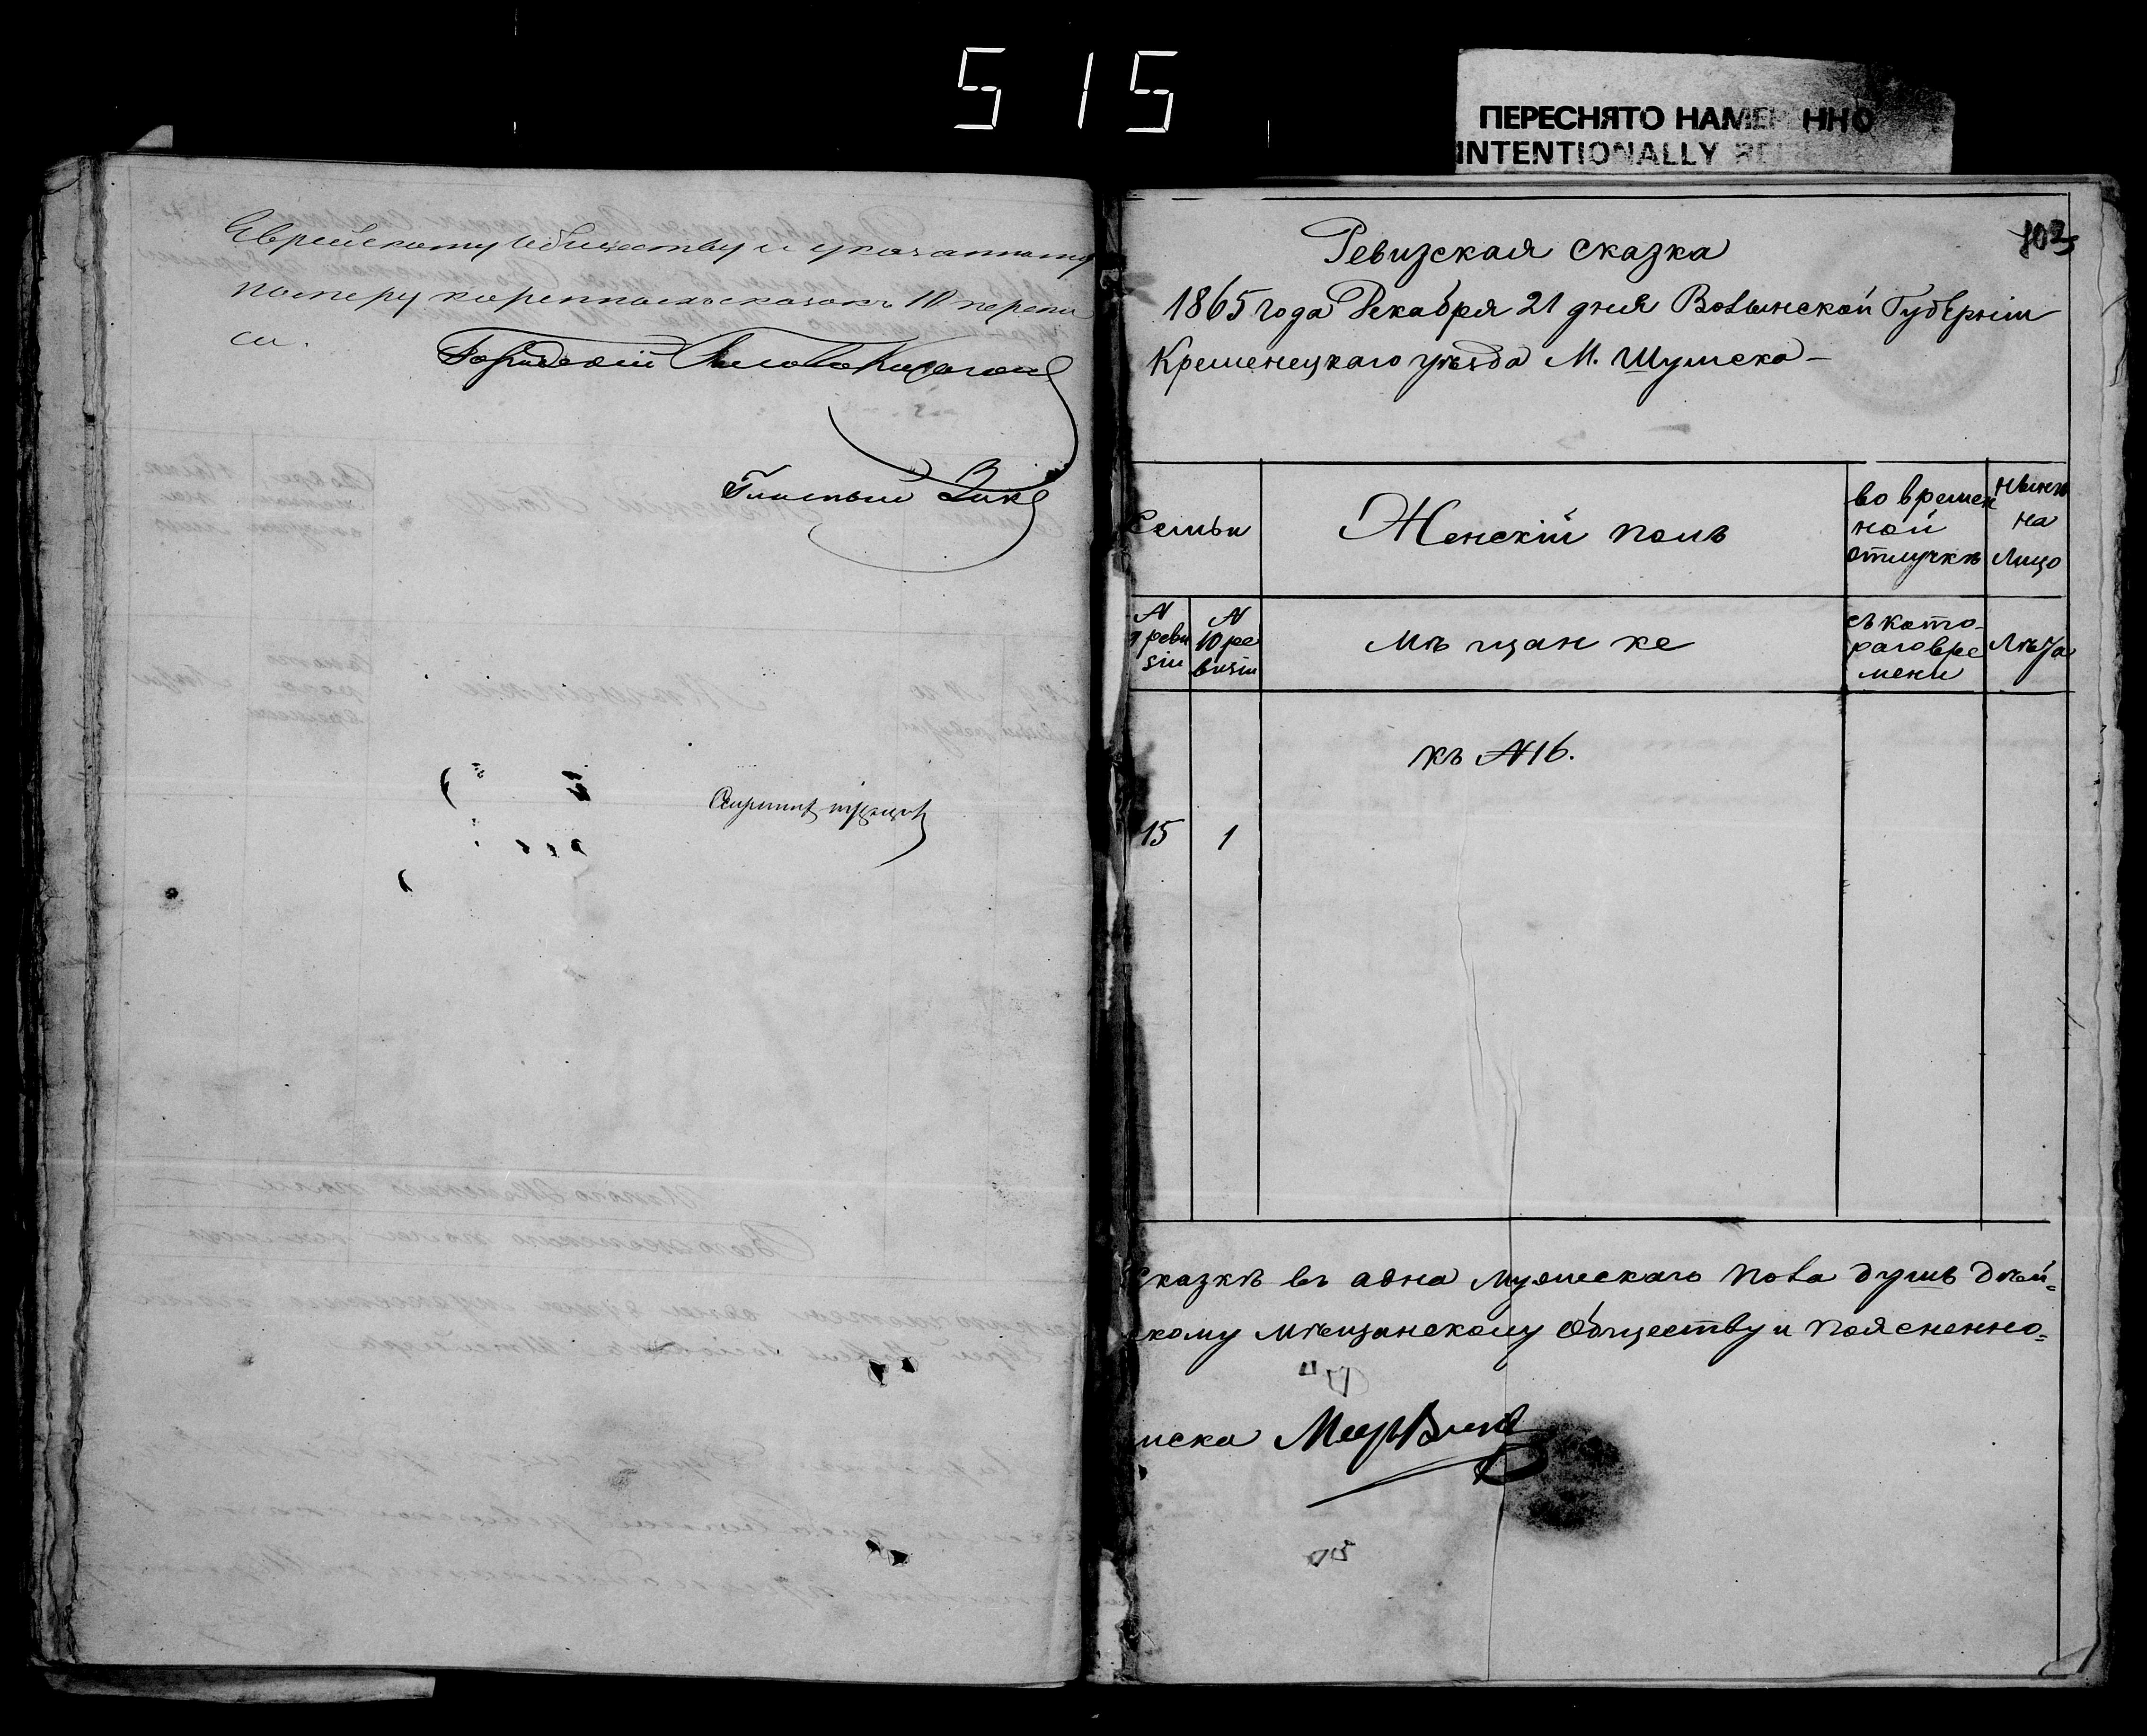 515
ПЕРЕСНЯТО НАМЕР ННО
INTENTIONALLY
Еврейскому Обществу и указанному
номеру коренныхъ сказокъ 10 перепи
си.
Городской Голова
Гласный
103
Ревизская сказка
1865 года Декабря 21 дня Волынской Губерніи
Кременецкаго уѣзда М. Шумска
Семьи
Женскій полъ
во времен
ной
отлучкѣ
нынѣ
на
лицо
N
9 реви
зіи
N
10 ре
визіи
Мѣщанке
съ кото-
раго вре
мени
Лѣта
къ N16.
15
1
сказкѣ въ адна мужескаго пола душъ дѣй=
скому мѣщанскому Обществу и поясненно=
мска